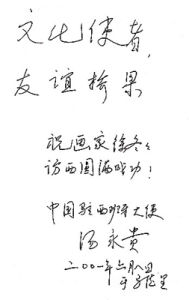 文化使者,
友谊撿果
祝画家徐冬冬
访西圆满成功!
中国驻西班牙大使
汤永贵
二〇〇一年六月八日
于马德里